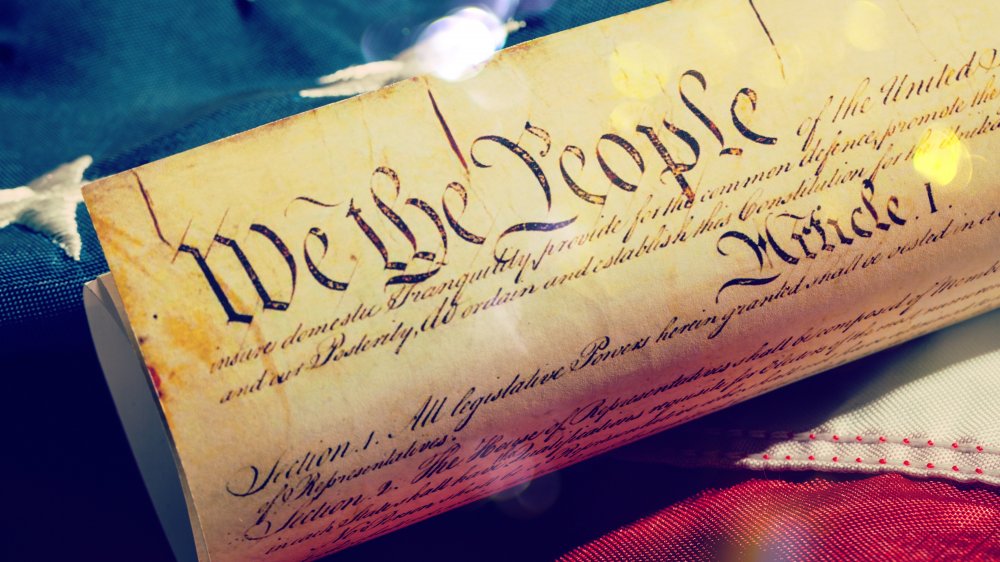 We the People of the United
insure domestic Tranquility, provide for the common defence, promote the
and our Posterity, do ordain and establish this Constitution for the United
Article. I.
Section. 1. All legislative Powers herein granted shall be vested in a
of Representatives.
Section. 2. The House of Representatives shall be composed of Members
in each State shall have the Qualifications requisite for Electors of the most